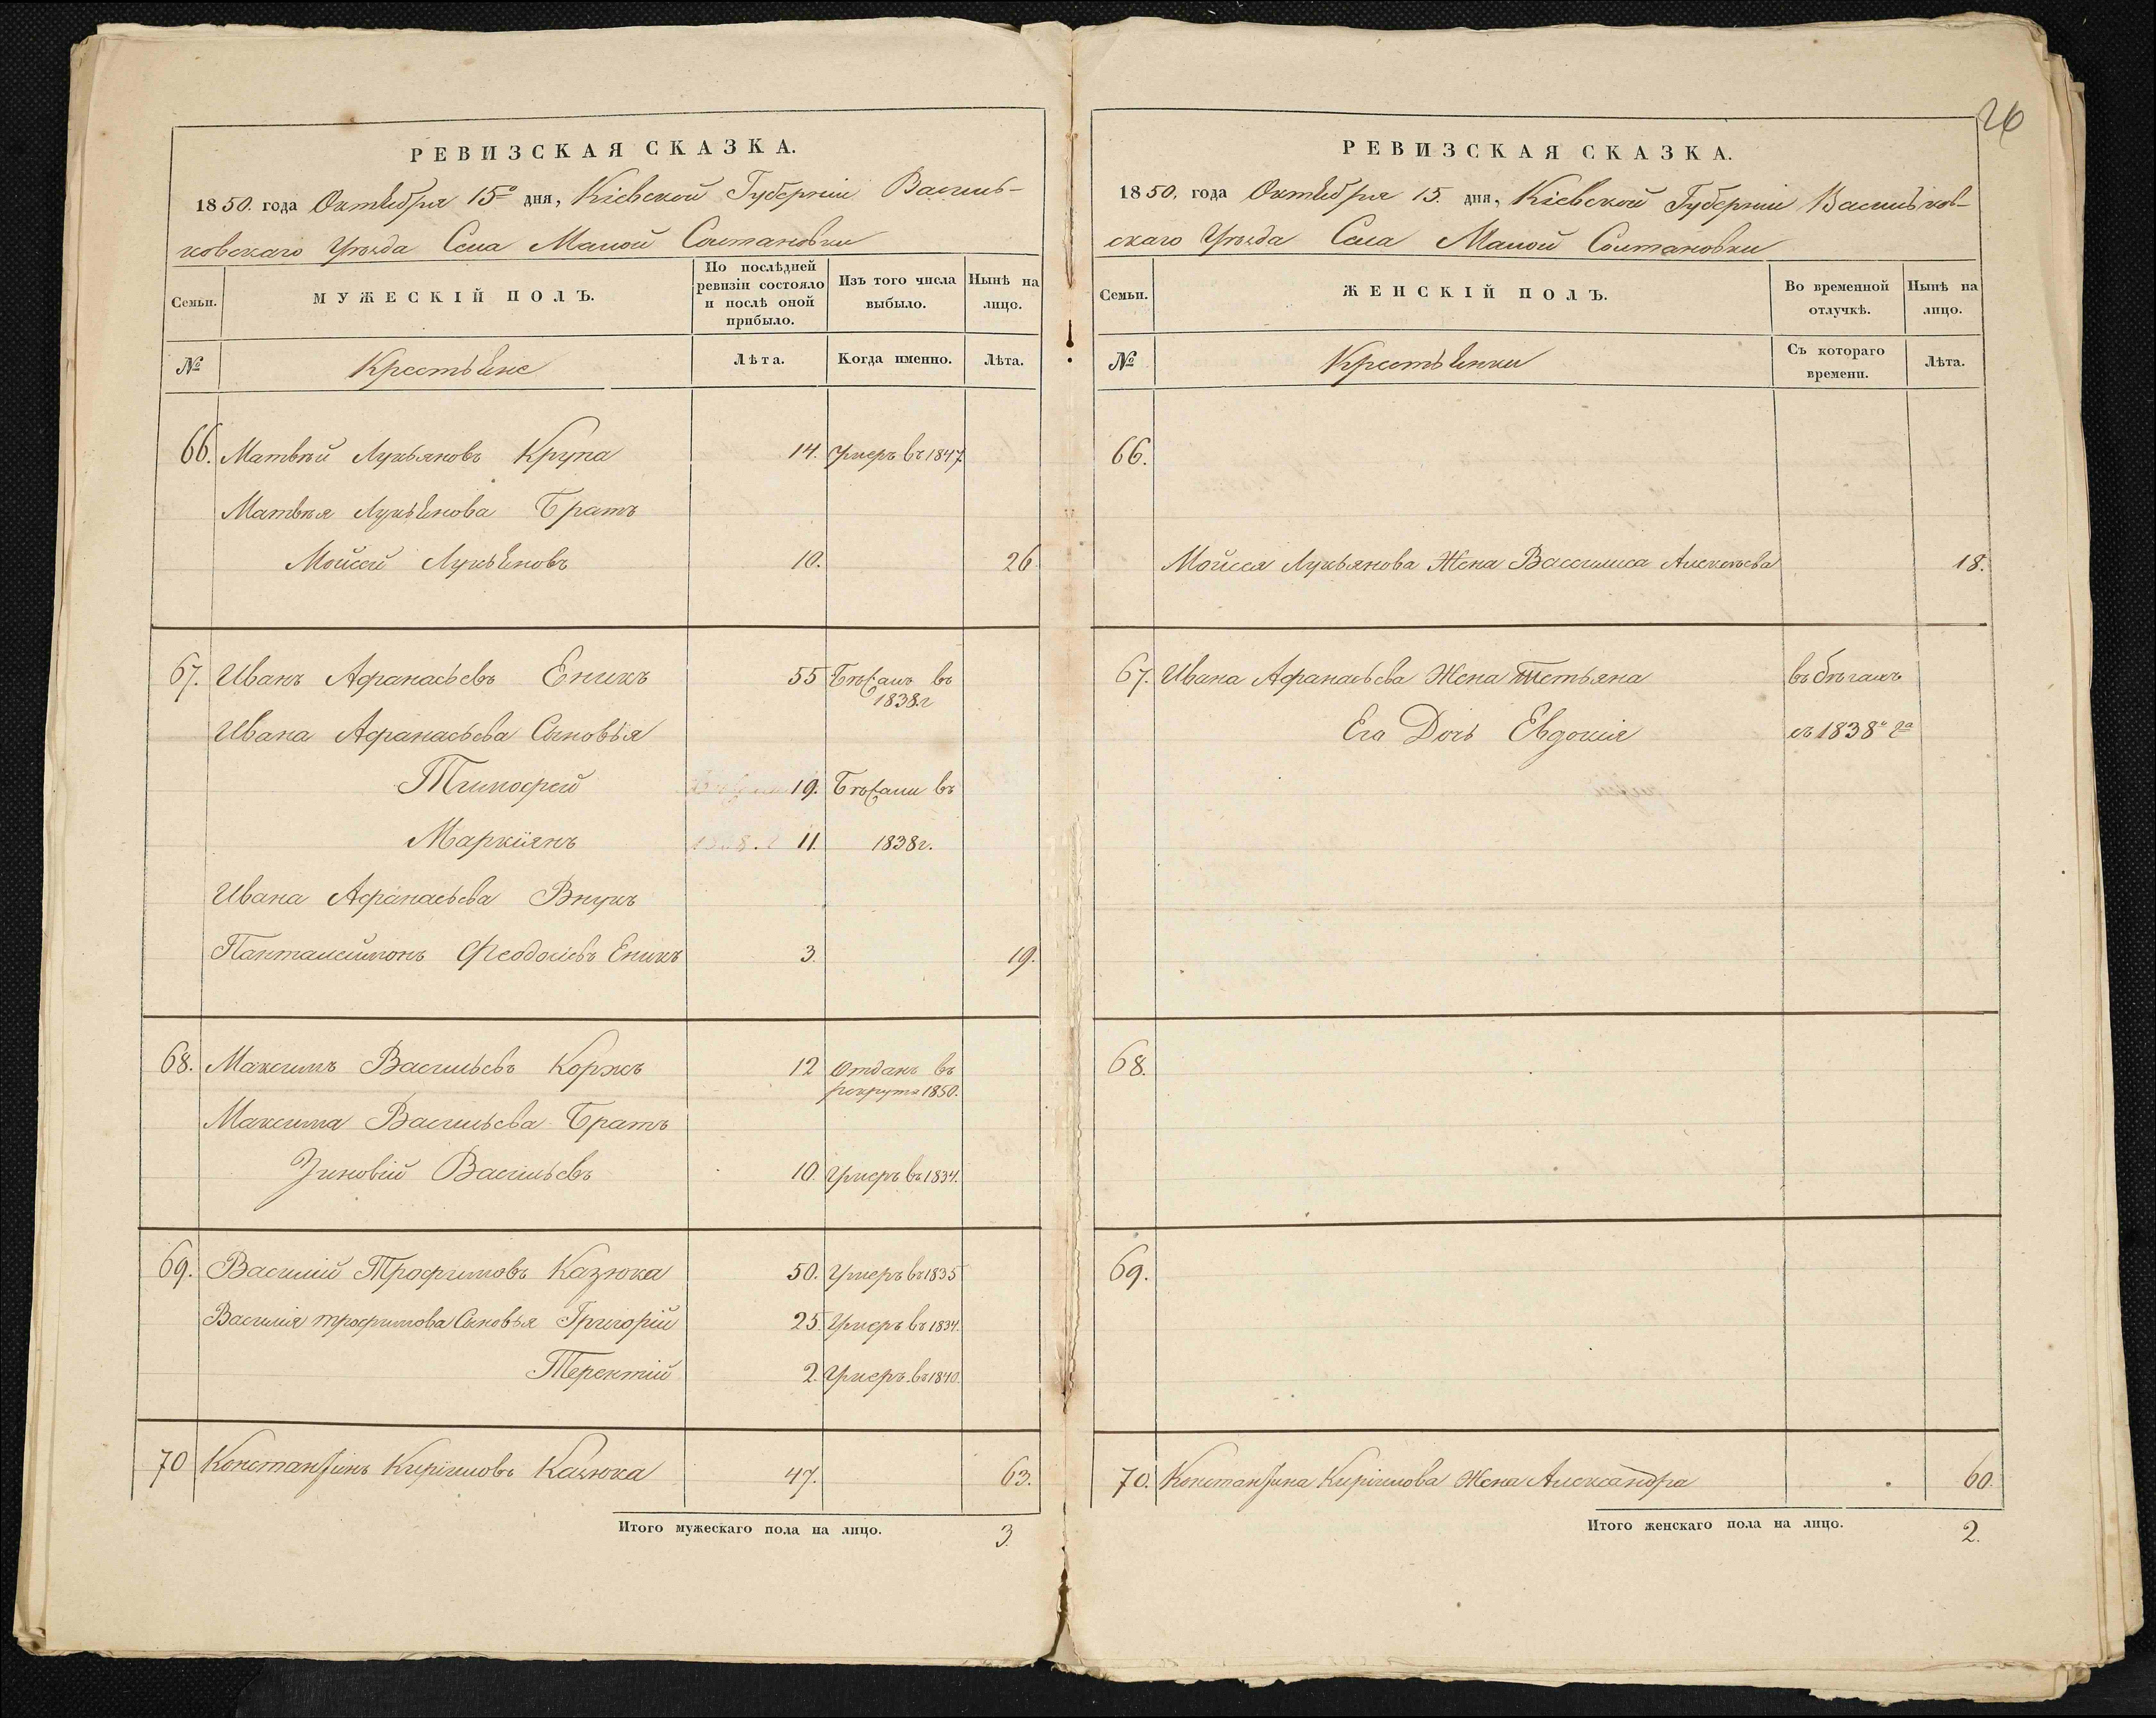 26
РЕВИЗСКАЯ СКАЗКА.
1850. года Октября 15го дня, Кіевской Губерніи Василь-
ковскаго Уѣзда Села Малой Солтановки
Семьи.
МУЖЕСКІЙ ПОЛЪ.
По послѣдней ревизіи состояло и послѣ оной прибыло.
Изъ того числа выбыло.
Нынѣ на лицо.
№ Крестьяне Лѣта. Когда именно. Лѣта.
66. Матвѣй Лукьяновъ Крупа 14. Умеръ въ 1847.
Матвѣя Лукьянова Братъ
Мойсей Лукьяновъ 10. 26
67. Иванъ Афанасьевъ Еникъ 55 Бѣжалъ въ
1838г
Ивана Афанасьева Сыновья
Тимофей 19. Бѣжали въ
Маркіянъ 11. 1838г.
Ивана Афанасьева Внукъ
Пантелеймонъ Феодосіевъ Еникъ 3. 19.
68. Максимъ Васильевъ Коржъ 12 Отданъ въ
рекрута 1850.
Максима Васильева Братъ
Зиновій Васильевъ 10. Умеръ въ 1834.
69. Василій Трофимовъ Казюка 50. Умеръ въ 1835
Василія трофимова Сыновья Григорій 25. Умеръ въ 1834.
Терентій 2. Умеръ въ 1840.
70 Константинъ Кириловъ Казюка 47. 63.
Итого мужескаго пола на лицо. 3.
РЕВИЗСКАЯ СКАЗКА.
1850. года Октября 15. дня, Кіевской Губерніи Васильков-
скаго Уѣзда Села Малой Солтановки
Семьи.
ЖЕНСКІЙ ПОЛЪ.
Во временной отлучкѣ.
Нынѣ на лицо.
№ Крестьянки Съ котораго времени. Лѣта.
66.
Мойсея Лукьянова Жена Василиса Алексѣева 18.
67. Ивана Афанасьева Жена Тетьяна въ бѣгахъ
Его Дочь Евдокія съ 1838го га
68.
69.
70. Константина Кирилова Жена Александра 60.
Итого женскаго пола на лицо. 2.